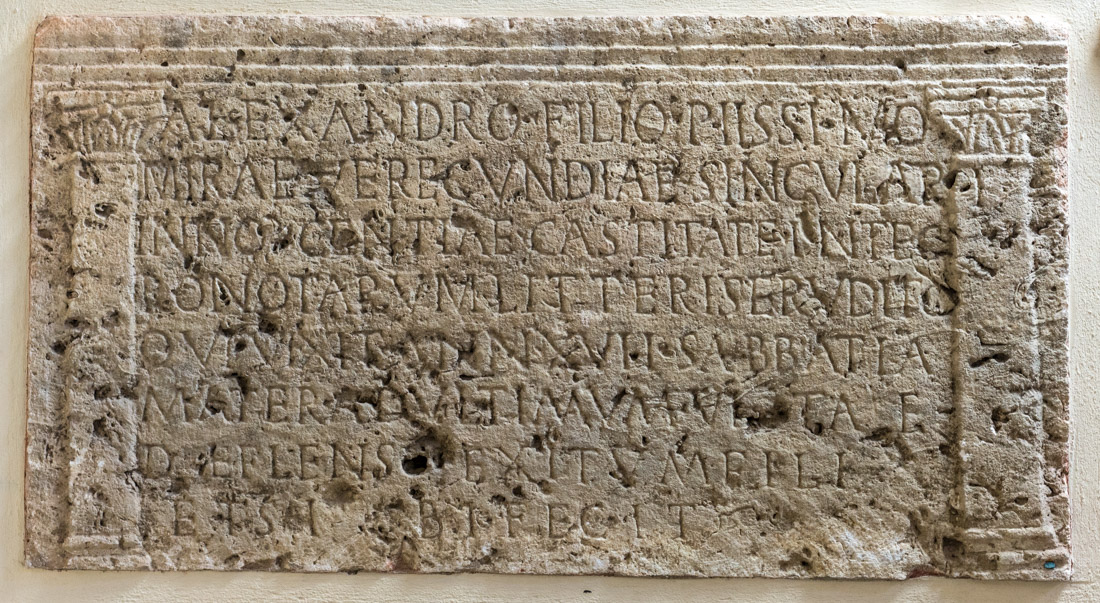 ALEXANDRO·FILIO·PIISSIMO
MIRAE·VERECVNDIAE·SINGVLARI
INNOCENTIAE·CASTITATE·INTEG
RO NOTARVM LITTERIS ERVDITO
QVI VIXIT ANN XVII·SABBATIA
MATER AD VLTIMVM VITAE
DEFLENS EXITVM EFILI
ET SIBI FECIT